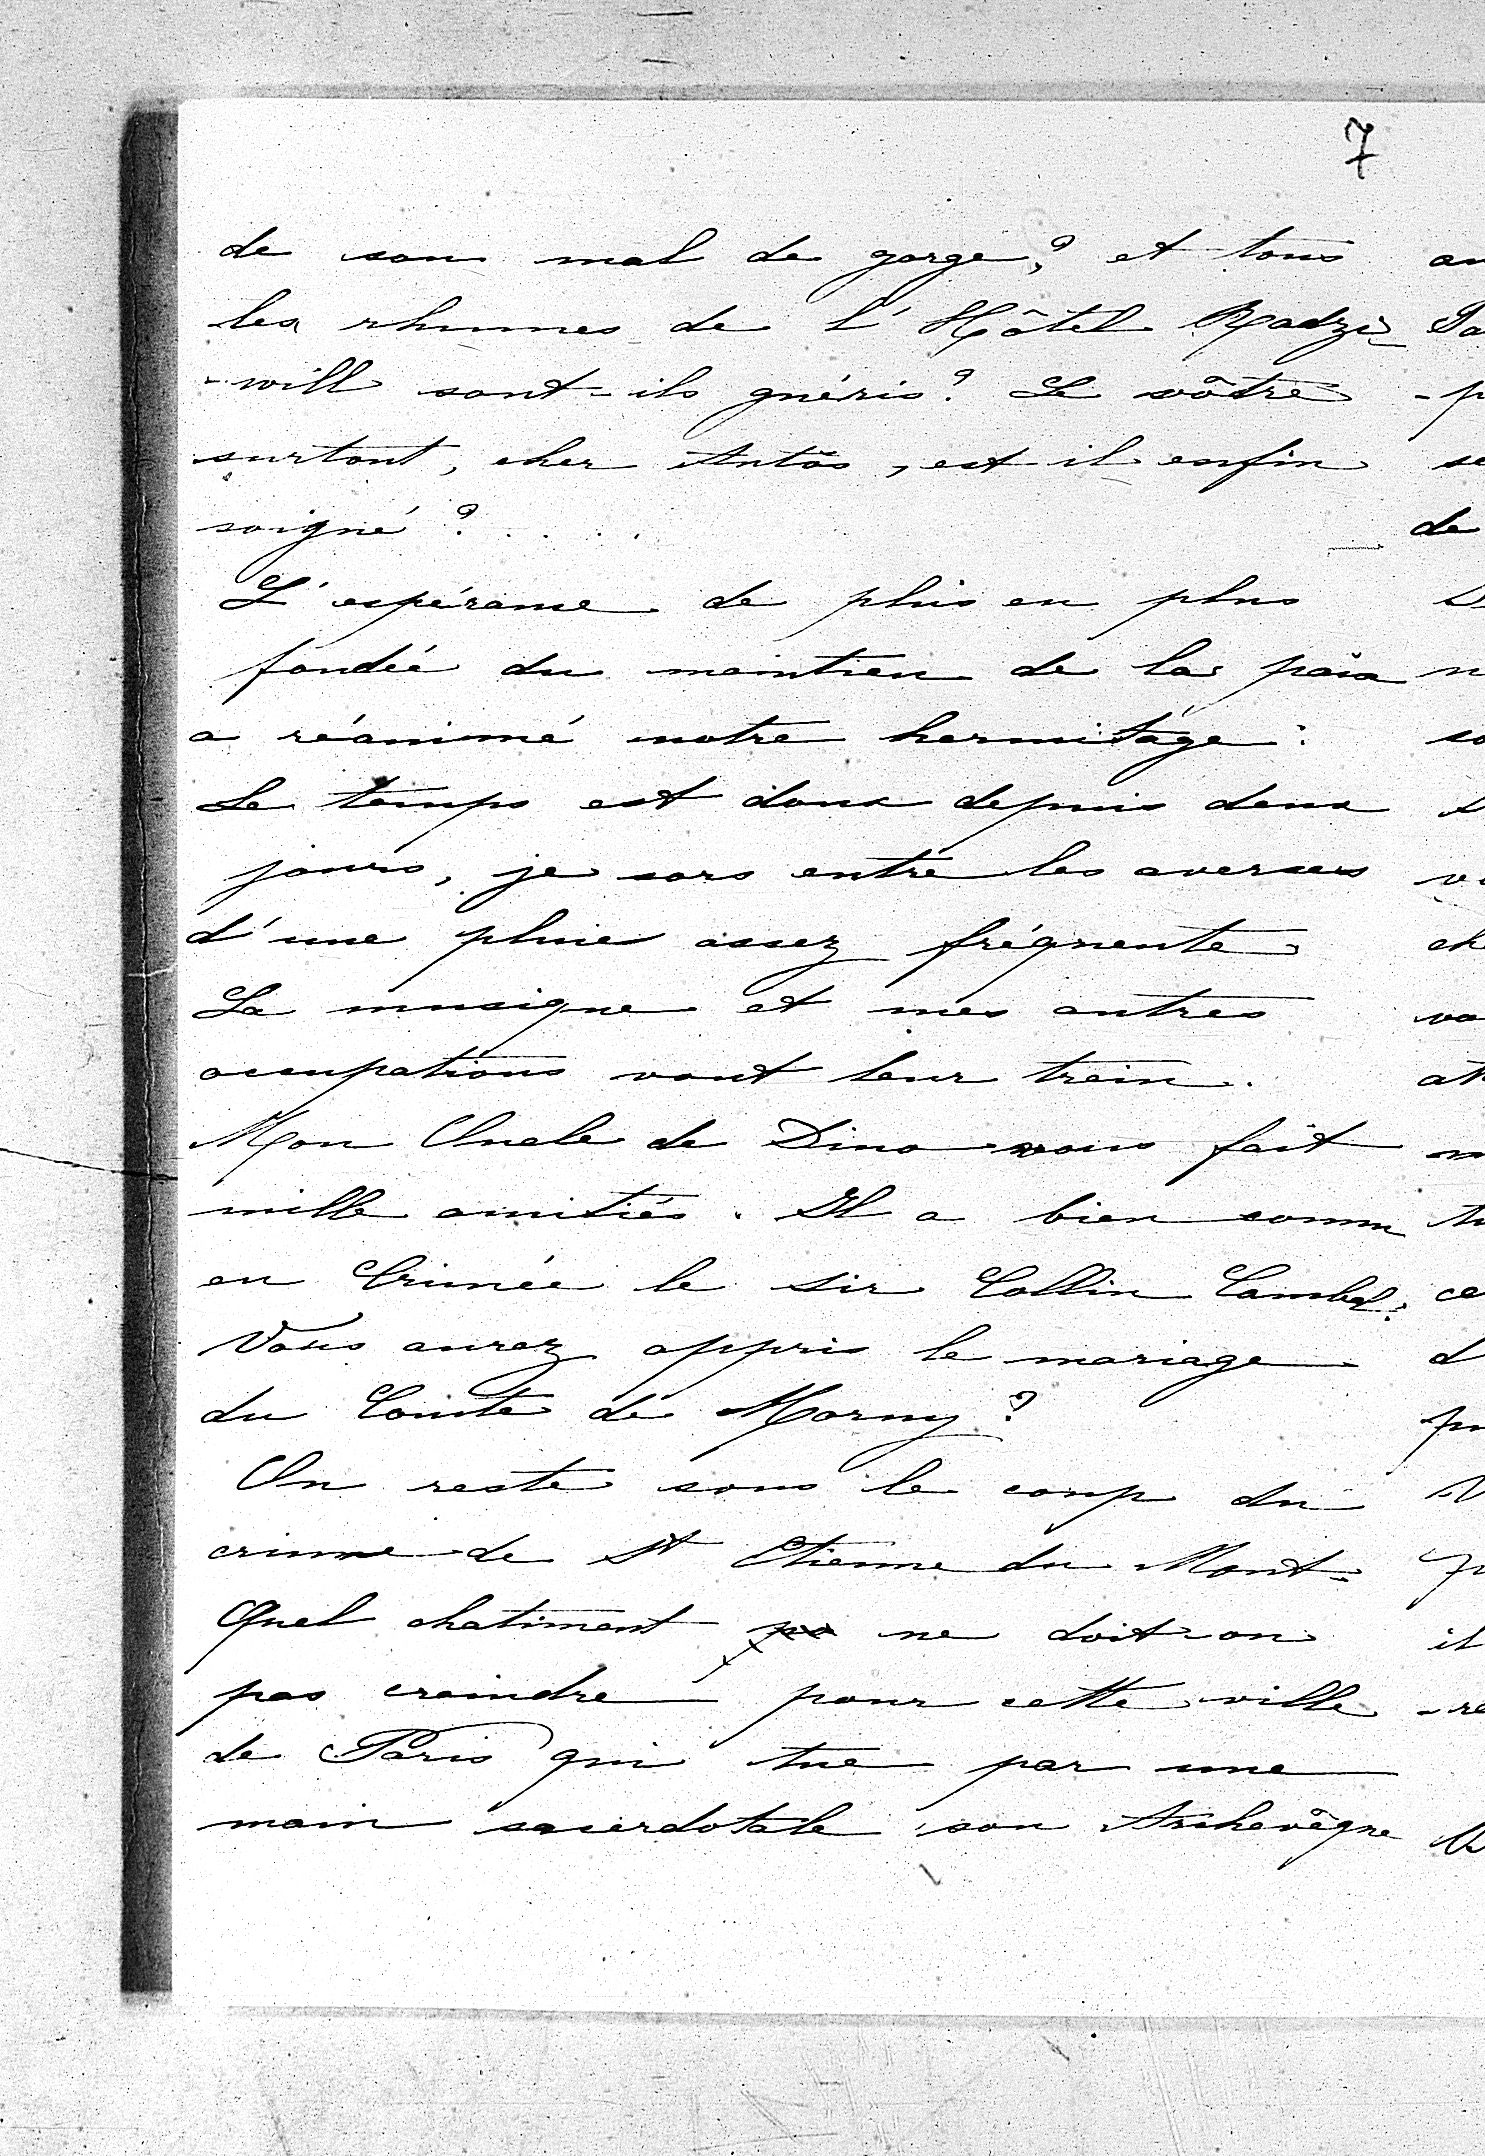 7
de son mal de gorge? et tous
les rhumes de l'Hôtel Radzi-
-will sont-ils guéris? Le vôtre
surtout, cher Antôs, est-il enfin
soigné? . . . .
L'espérance de plus en plus
fondée du maintien de la paix
a réanimé notre hermitage:
Le temps est doux depuis deux
jours, je sors entre les averses
d'une pluie assez fréquente
La musique et mes autres
occupations vont leur train.
Mon Oncle de Dino vous fait
mille amitiés. Il a bien connu
en Crimée le Sir Collin Cambel.
Vous aurez appris le mariage
du Comte de Morny?
On reste sous le coup du
crime de St Etienne du Mont-
Quel chatiment ne doit-on
pas craindre pour cette ville
de Paris qui tue par une
main sacerdotale son Archevêque